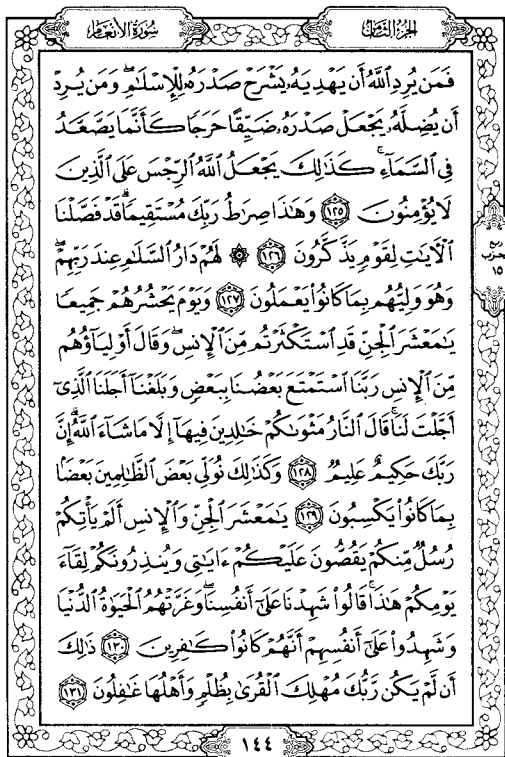 سُورَةُ الأَنْعَام
الجُزْءُ الثَّامِن
فَمَن يُرِدِ ٱللَّهُ أَن يَهْدِيَهُۥ يَشْرَحْ صَدْرَهُۥ لِلْإِسْلَٰمِ ۖ وَمَن يُرِدْ
أَن يُضِلَّهُۥ يَجْعَلْ صَدْرَهُۥ ضَيِّقًا حَرَجًا كَأَنَّمَا يَصَّعَّدُ
فِى ٱلسَّمَآءِ ۚ كَذَٰلِكَ يَجْعَلُ ٱللَّهُ ٱلرِّجْسَ عَلَى ٱلَّذِينَ
لَا يُؤْمِنُونَ ١٢٥ وَهَٰذَا صِرَٰطُ رَبِّكَ مُسْتَقِيمًا ۗ قَدْ فَصَّلْنَا
ٱلْآيَٰتِ لِقَوْمٍ يَذَّكَّرُونَ ١٢٦ ۞ لَهُمْ دَارُ ٱلسَّلَٰمِ عِندَ رَبِّهِمْ ۖ
وَهُوَ وَلِيُّهُم بِمَا كَانُوا۟ يَعْمَلُونَ ١٢٧ وَيَوْمَ يَحْشُرُهُمْ جَمِيعًا
يَٰمَعْشَرَ ٱلْجِنِّ قَدِ ٱسْتَكْثَرْتُم مِّنَ ٱلْإِنسِ ۖ وَقَالَ أَوْلِيَآؤُهُم
مِّنَ ٱلْإِنسِ رَبَّنَا ٱسْتَمْتَعَ بَعْضُنَا بِبَعْضٍ وَبَلَغْنَآ أَجَلَنَا ٱلَّذِىٓ
أَجَّلْتَ لَنَا ۚ قَالَ ٱلنَّارُ مَثْوَىٰكُمْ خَٰلِدِينَ فِيهَآ إِلَّا مَا شَآءَ ٱللَّهُ ۗ إِنَّ
رَبَّكَ حَكِيمٌ عَلِيمٌ ١٢٨ وَكَذَٰلِكَ نُوَلِّى بَعْضَ ٱلظَّٰلِمِينَ بَعْضًۢا
بِمَا كَانُوا۟ يَكْسِبُونَ ١٢٩ يَٰمَعْشَرَ ٱلْجِنِّ وَٱلْإِنسِ أَلَمْ يَأْتِكُمْ
رُسُلٌ مِّنكُمْ يَقُصُّونَ عَلَيْكُمْ ءَايَٰتِى وَيُنذِرُونَكُمْ لِقَآءَ
يَوْمِكُمْ هَٰذَا ۚ قَالُوا۟ شَهِدْنَا عَلَىٰٓ أَنفُسِنَا ۖ وَغَرَّتْهُمُ ٱلْحَيَوٰةُ ٱلدُّنْيَا
وَشَهِدُوا۟ عَلَىٰٓ أَنفُسِهِمْ أَنَّهُمْ كَانُوا۟ كَٰفِرِينَ ١٣٠ ذَٰلِكَ
أَن لَّمْ يَكُن رَّبُّكَ مُهْلِكَ ٱلْقُرَىٰ بِظُلْمٍ وَأَهْلُهَا غَٰفِلُونَ ١٣١
ربع
حزب
١٥
١٤٤